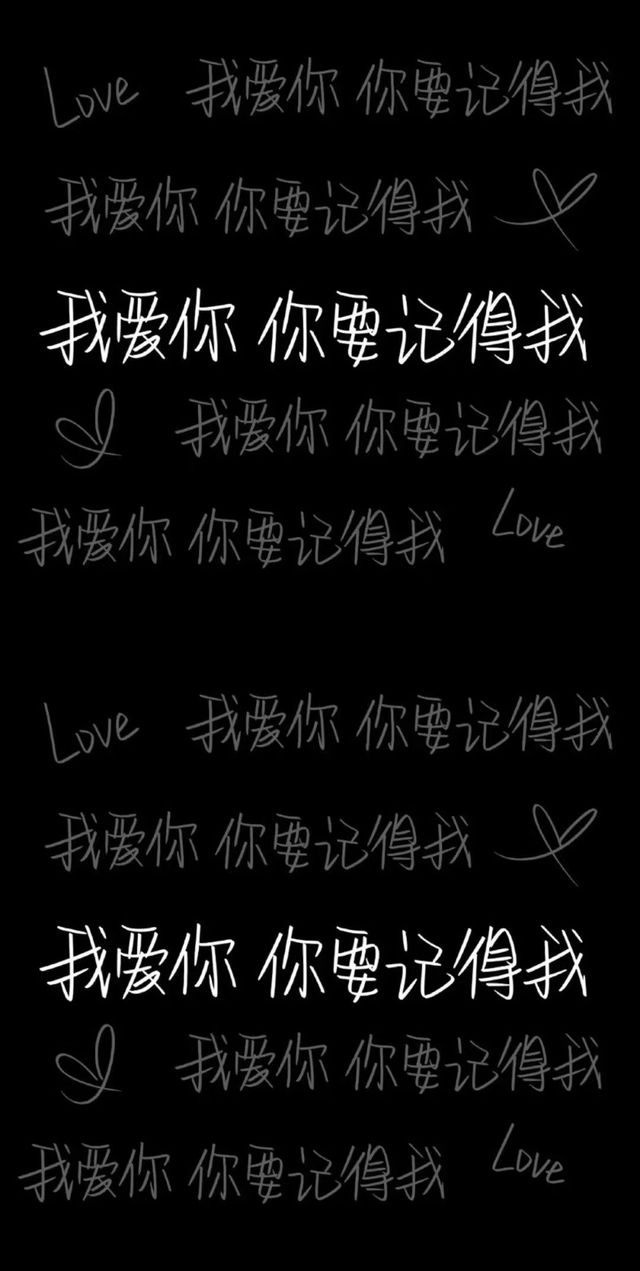 Love 我爱你 你要记得我
我爱你 你要记得我
我爱你 你要记得我
我爱你 你要记得我
我爱你 你要记得我 Love
Love 我爱你 你要记得我
我爱你 你要记得我
我爱你 你要记得我
我爱你 你要记得我
我爱你 你要记得我 Love